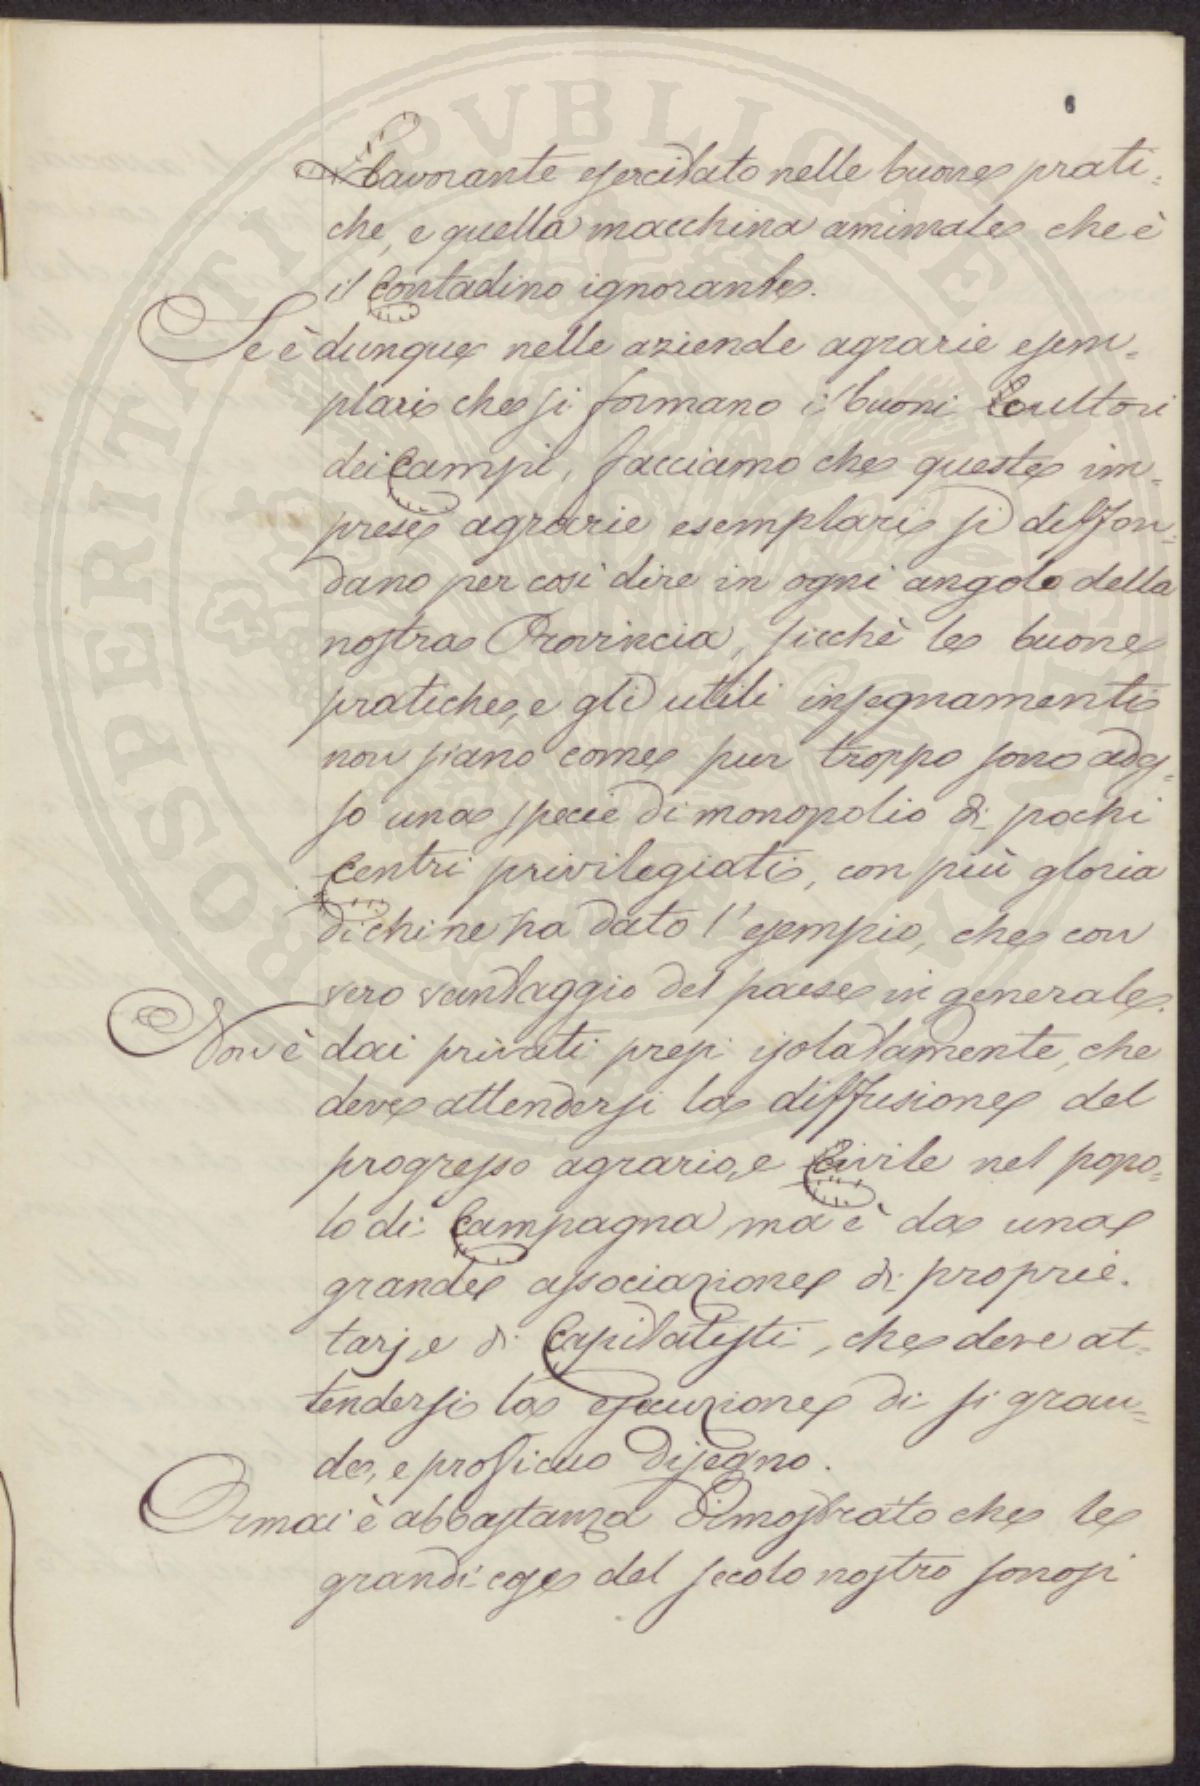 6
Lavorante esercitato nelle buone prati-
che, e quella macchina animale che è
il Contadino ignorante.
Se è dunque nelle aziende agrarie esem-
plari che si formano i buoni Coultori
dei Campi, facciamo che queste im-
prese agrarie esemplari si diffon-
dano per così dire in ogni angolo della
nostra Provincia, sicchè le buone
pratiche, e gli utili insegnamenti
non siano come pur troppo sono ades-
so una specie di monopolio di pochi
Centri privilegiati, con più gloria
di chi ne ha dato l'esempio, che con
vero vantaggio del paese in generale.
Non è dai privati presi isolatamente, che
deve attendersi la diffusione del
progresso agrario, e Civile nel popo-
lo di Campagna, ma è da una
grande associazione di proprie-
tarj, e di Capitalisti, che deve at-
tendersi la esecuzione di si gran-
de, e proficuo disegno.
Ormai è abbastanza dimostrato che le
grandi cose del secolo nostro sonosi
PROSPERITATI PVBLICAE